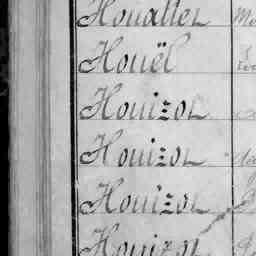 Houallet
Houël
Houizot
Houizot
Houizot
Houizot